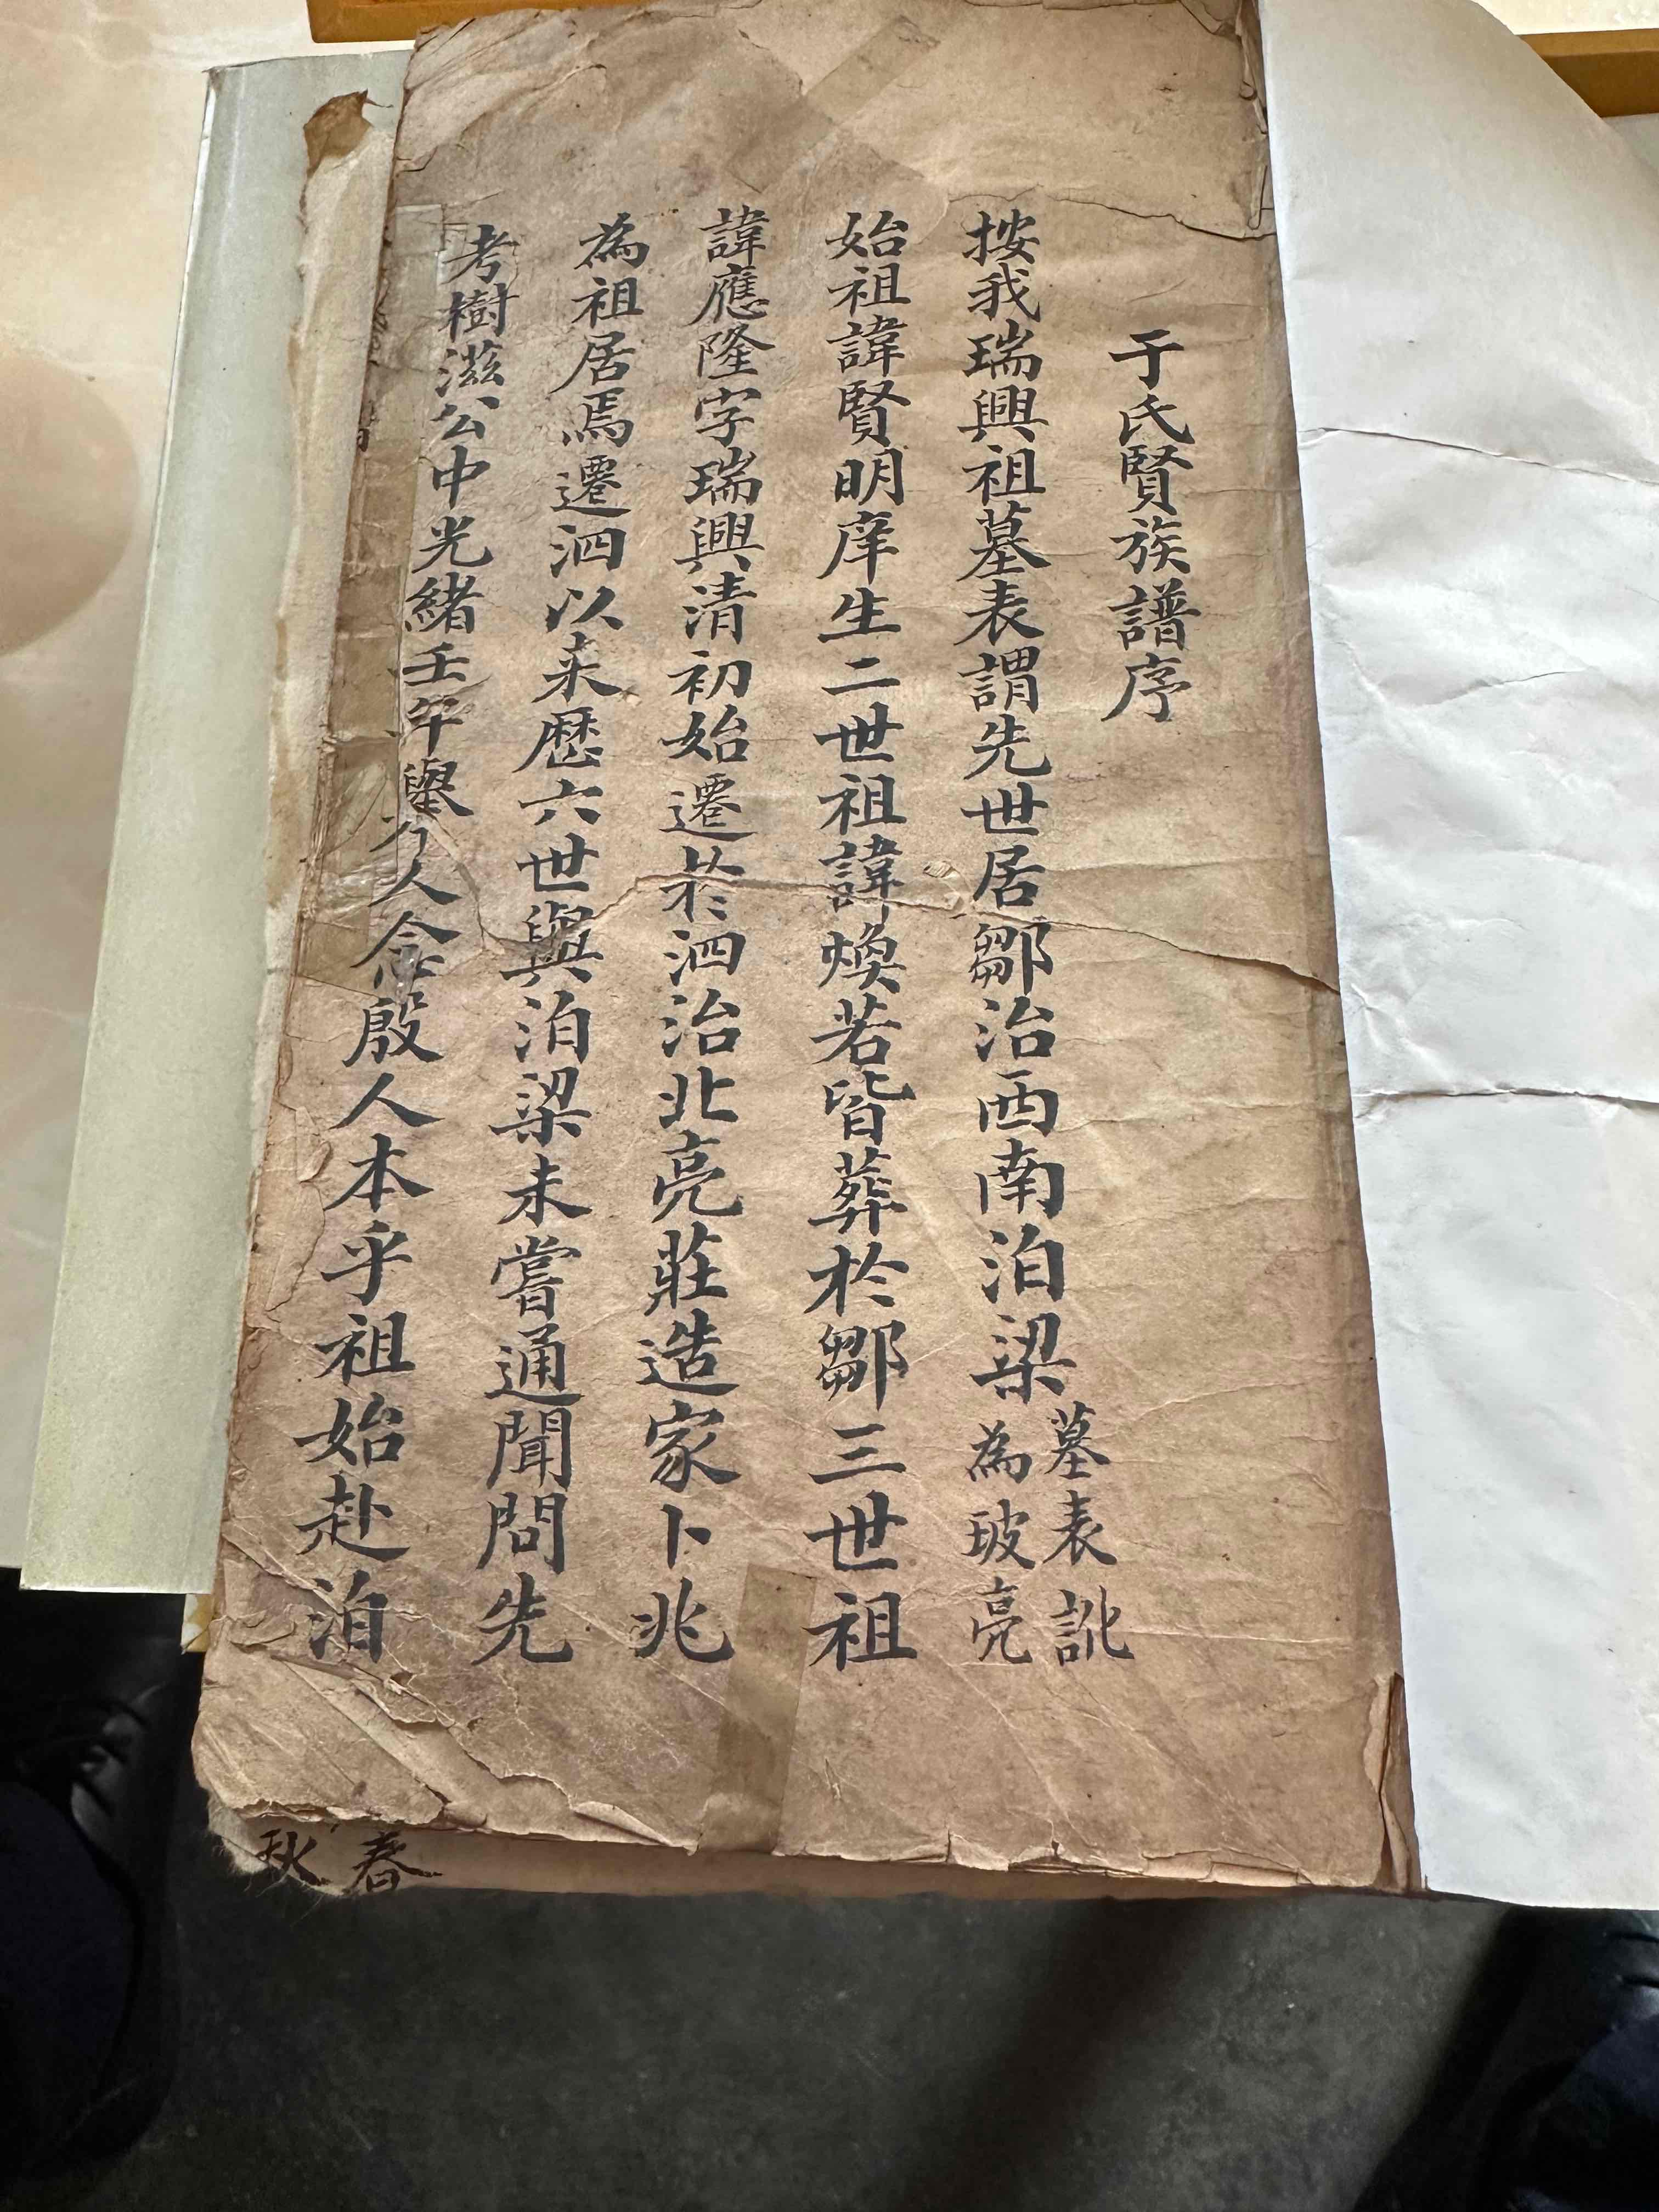 于氏賢族譜序
按我瑞興祖墓表謂先世居鄒治西南泊梁墓表訛為玻亮
始祖諱賢明庠生二世祖諱煥若皆葬於鄒三世祖
諱應隆字瑞興清初始遷於泗治北亮莊造家卜兆
為祖居焉遷泗以来歷六世與泊梁未嘗通聞問先
考樹滋公中光緒壬午舉人念殷人本乎祖始赴泊
春
秋